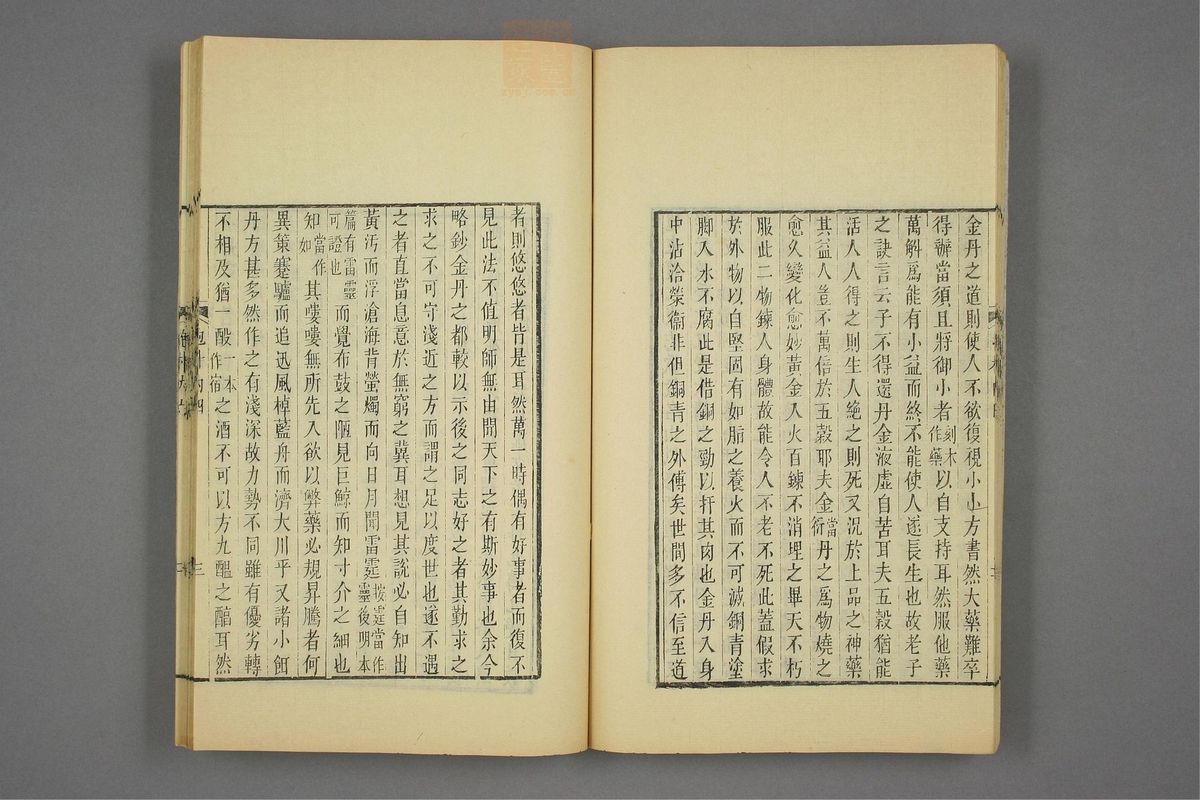 金丹之道則使人不欲復視小小方書然大藥難卒
得辦當須且將御小者刻本作藥以自支持耳然服他藥
萬斛爲能有小益而終不能使人遂長生也故老子
之訣言云子不得還丹金液虛自苦耳夫五穀猶能
活人人得之則生人絶之則死又況於上品之神藥
其益人豈不萬倍於五穀耶夫金當衍丹之爲物燒之
愈久變化愈妙黃金入火百鍊不消埋之畢天不朽
服此二物鍊人身體故能令人不老不死此蓋假求
於外物以自堅固有如脂之養火而不可滅銅青塗
脚入水不腐此是借銅之勁以扞其肉也金丹入身
中沾洽榮衞非但銅青之外傅矣世間多不信至道
者則悠悠者皆是耳然萬一時偶有好事者而復不
見此法不值明師無由聞天下之有斯妙事也余今
略鈔金丹之都較以示後之同志好之者其勤求之
求之不可守淺近之方而謂之足以度世也遂不遇
之者直當息意於無窮之冀耳想見其說必自知出
黃汚而浮滄海背螢燭而向日月聞雷霆按霆當作靈後明本
篇有雷靈可證也而覺布鼓之陋見巨鯨而知寸介之細也
知當作如其嘍嘍無所先入欲以弊藥必規昇騰者何
異策蹇驢而追迅風棹藍舟而濟大川乎又諸小餌
丹方甚多然作之有淺深故力勢不同雖有優劣轉
不相及猶一酘一本作宿之酒不可以方九醞之醇耳然